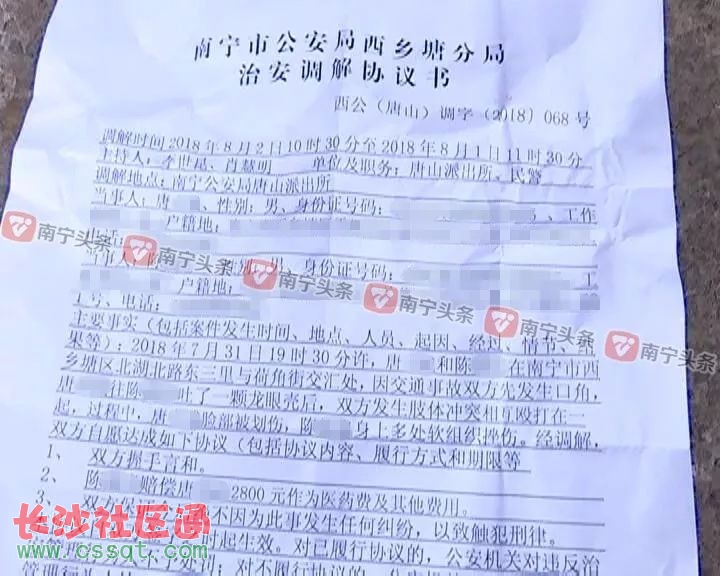 南宁市公安局西乡塘分局
治安调解协议书
西公（唐山）调字（2018）068号
调解时间2018年8月2日10时30分至2018年8月1日11时30分
主持人：李世昆、肖慧明 单位及职务：唐山派出所、民警
调解地点：南宁公安局唐山派出所
当事人：唐 、性别：男、身份证号码： 、工作
户籍地：
电话：
当事人：陈 性别：男、身份证号码： 工
户籍地：
工号、电话：
主要事实（包括案件发生时间、地点、人员、起因、经过、情节、结
果等）：2018年7月31日19时30分许，唐 和陈 在南宁市西
乡塘区北湖北路东三里与荷角街交汇处，因交通事故双方先发生口角，
唐 往陈 吐了一颗龙眼壳后，双方发生肢体冲突相互殴打在一
起，过程中，唐 脸部被划伤，陈 身上多处软组织挫伤。经调解，
双方自愿达成如下协议（包括协议内容、履行方式和期限等
1、 双方握手言和。
2、 陈 赔偿唐 2800元作为医药费及其他费用。
3、 双方保证 不因为此事发生任何纠纷，以致触犯刑律。
时起生效。对已履行协议的，公安机关对违反治
不予处罚；对不履行协议的，公安机关
南宁头条
南宁头条
南宁头条
南宁头条
南宁头条
南宁头条
长沙社区通
www.cssqt.com